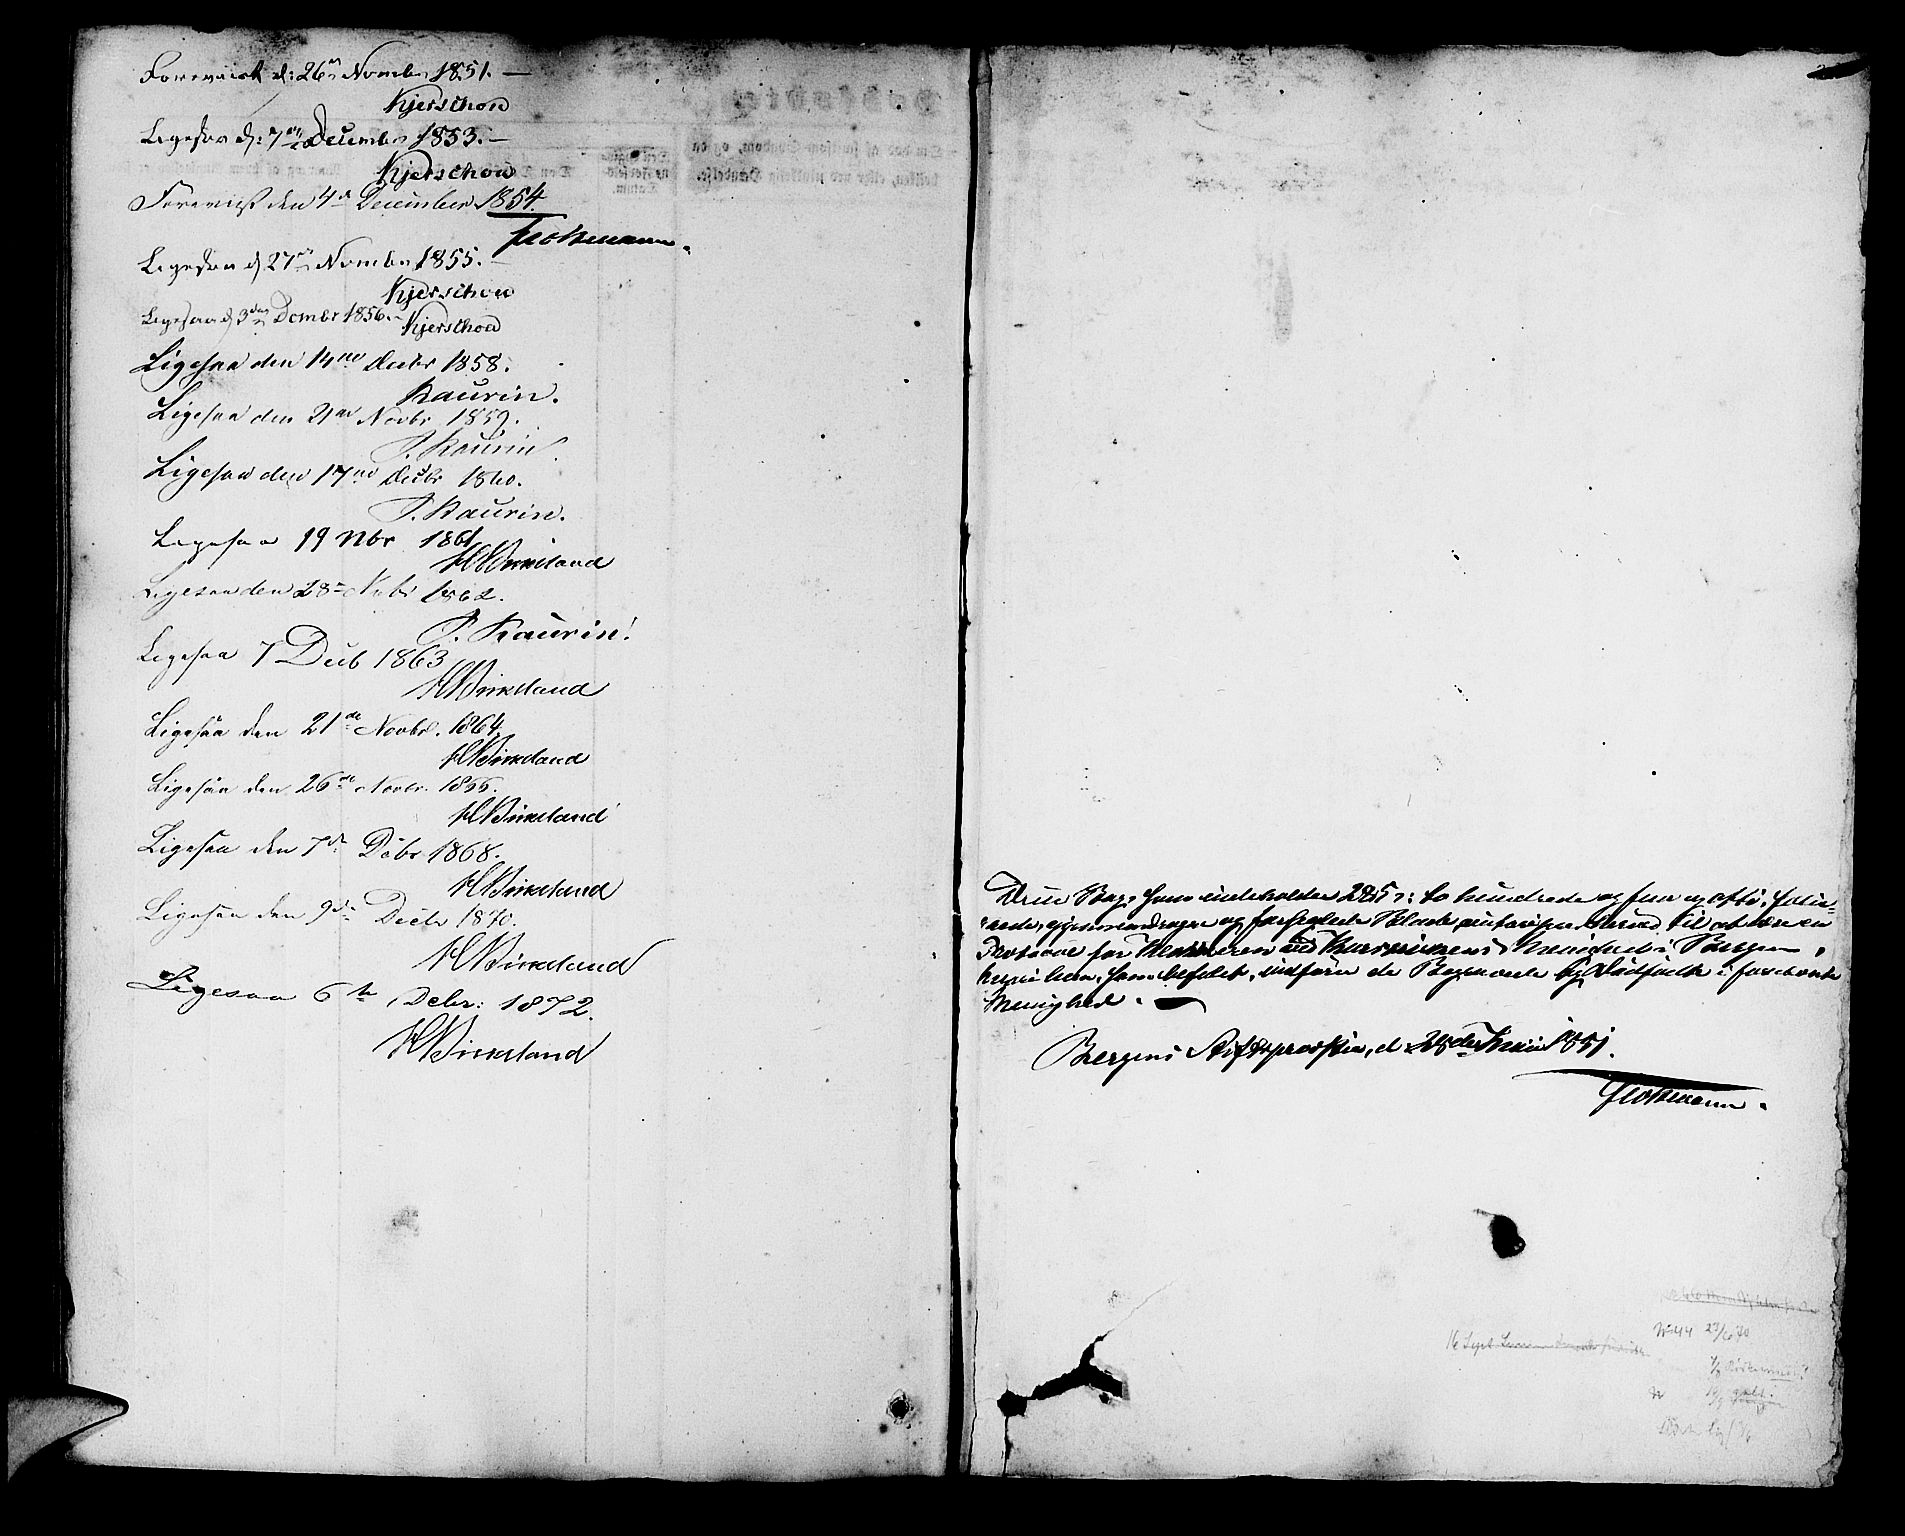 Foreviist d: 26de Novembr 1851. —
Kjerschow
Ligesaa d: 7de Decembr 1853. —
Kjerschow
Foreviist den 4de December 1854.
Ligesaa d 27de Novembr 1855. —
Kjerschow
Ligesaa d 3die Decmbr 1856. —
Kjerschow
Ligesaa den 14de Decbr 1858.
Kaurin.
Ligesaa den 21de Novbr 1859.
P. Kaurin.
Ligesaa den 17de Decbr 1860.
P. Kaurin.
Ligesaa 19 Nbr 1861
HBirkeland
Ligesaa den 28de Nvbr 1862.
P. Kaurin!
Ligesaa 7 Decb 1863
HBirkeland
Ligesaa den 21de Novbr. 1864.
HBirkeland
Ligesaa den 26de Novbr. 1866.
HBirkeland
Ligesaa den 7de Debr 1868.
HBirkeland
Ligesaa den 9de Decbr 1870.
HBirkeland
Ligesaa 6te Debr: 1872.
HBirkeland
Denne Bog, som indeholder 285 s: to hundrede og fem og otti, folie=
rede, gjennemdragne og forseglede Blade, autoriseres herved til at være en
Protocol for Klokkeren ved Korskirkens Menighed i Bergen,
hvori han, som befalet, indfører de Begravede og Dødfødte i forenævnte
Menighed.
Bergens Stiftsprovstie, d. 28de Juni 1851.
16 Sept
N: 44 27/6 70